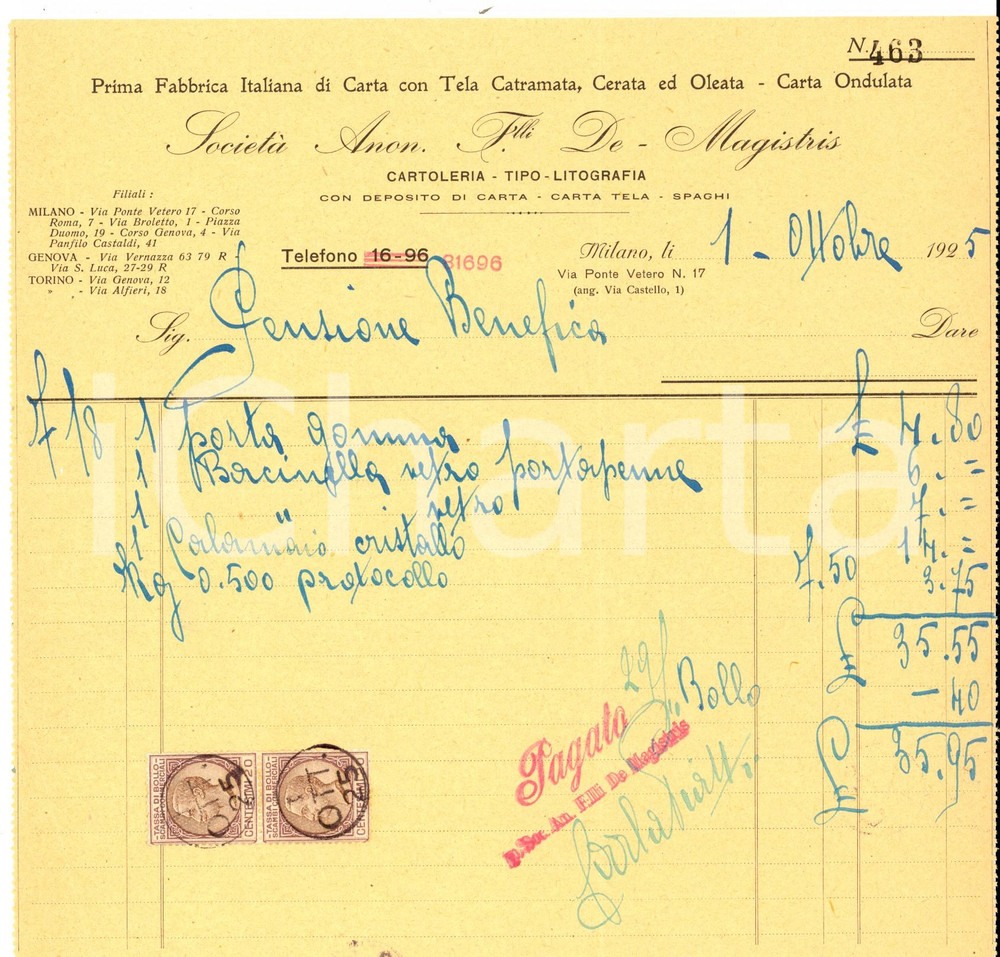 N. 463
Prima Fabbrica Italiana di Carta con Tela Catramata, Cerata ed Oleata - Carta Ondulata
Società Anon. F.lli De - Magistris
CARTOLERIA - TIPO-LITOGRAFIA
CON DEPOSITO DI CARTA - CARTA TELA - SPAGHI
Filiali :
MILANO - Via Ponte Vetero 17 - Corso
Roma, 7 - Via Broletto, 1 - Piazza
Duomo, 19 - Corso Genova, 4 - Via
Panfilo Castaldi, 41
GENOVA - Via Vernazza 63 79 R -
Via S. Luca, 27-29 R
TORINO - Via Genova, 12
" - Via Alfieri, 18
Telefono 16-96 81696
Milano, li 1 - Ottobre 1925
Via Ponte Vetero N. 17
(ang. Via Castello, 1)
Sig. Pensione Benefica Dare
7/8 1 porta gomma £ 4.80
1 Bacinella vetro portapenne 6.=
1 " vetro 7.=
1 Calamaio cristallo 14.=
Kg 0.500 protocollo 7.50 3.75
£ 35.55
29/ Bollo -40
£ 35.95
Pagato
p. Soc. An. F.lli De Magistris
TASSA DI BOLLO
SCAMBI COMMERCIALI
CENTESIMI 20
OTT.
25
TASSA DI BOLLO
SCAMBI COMMERCIALI
CENTESIMI 20
1 OTT.
25
iCharta